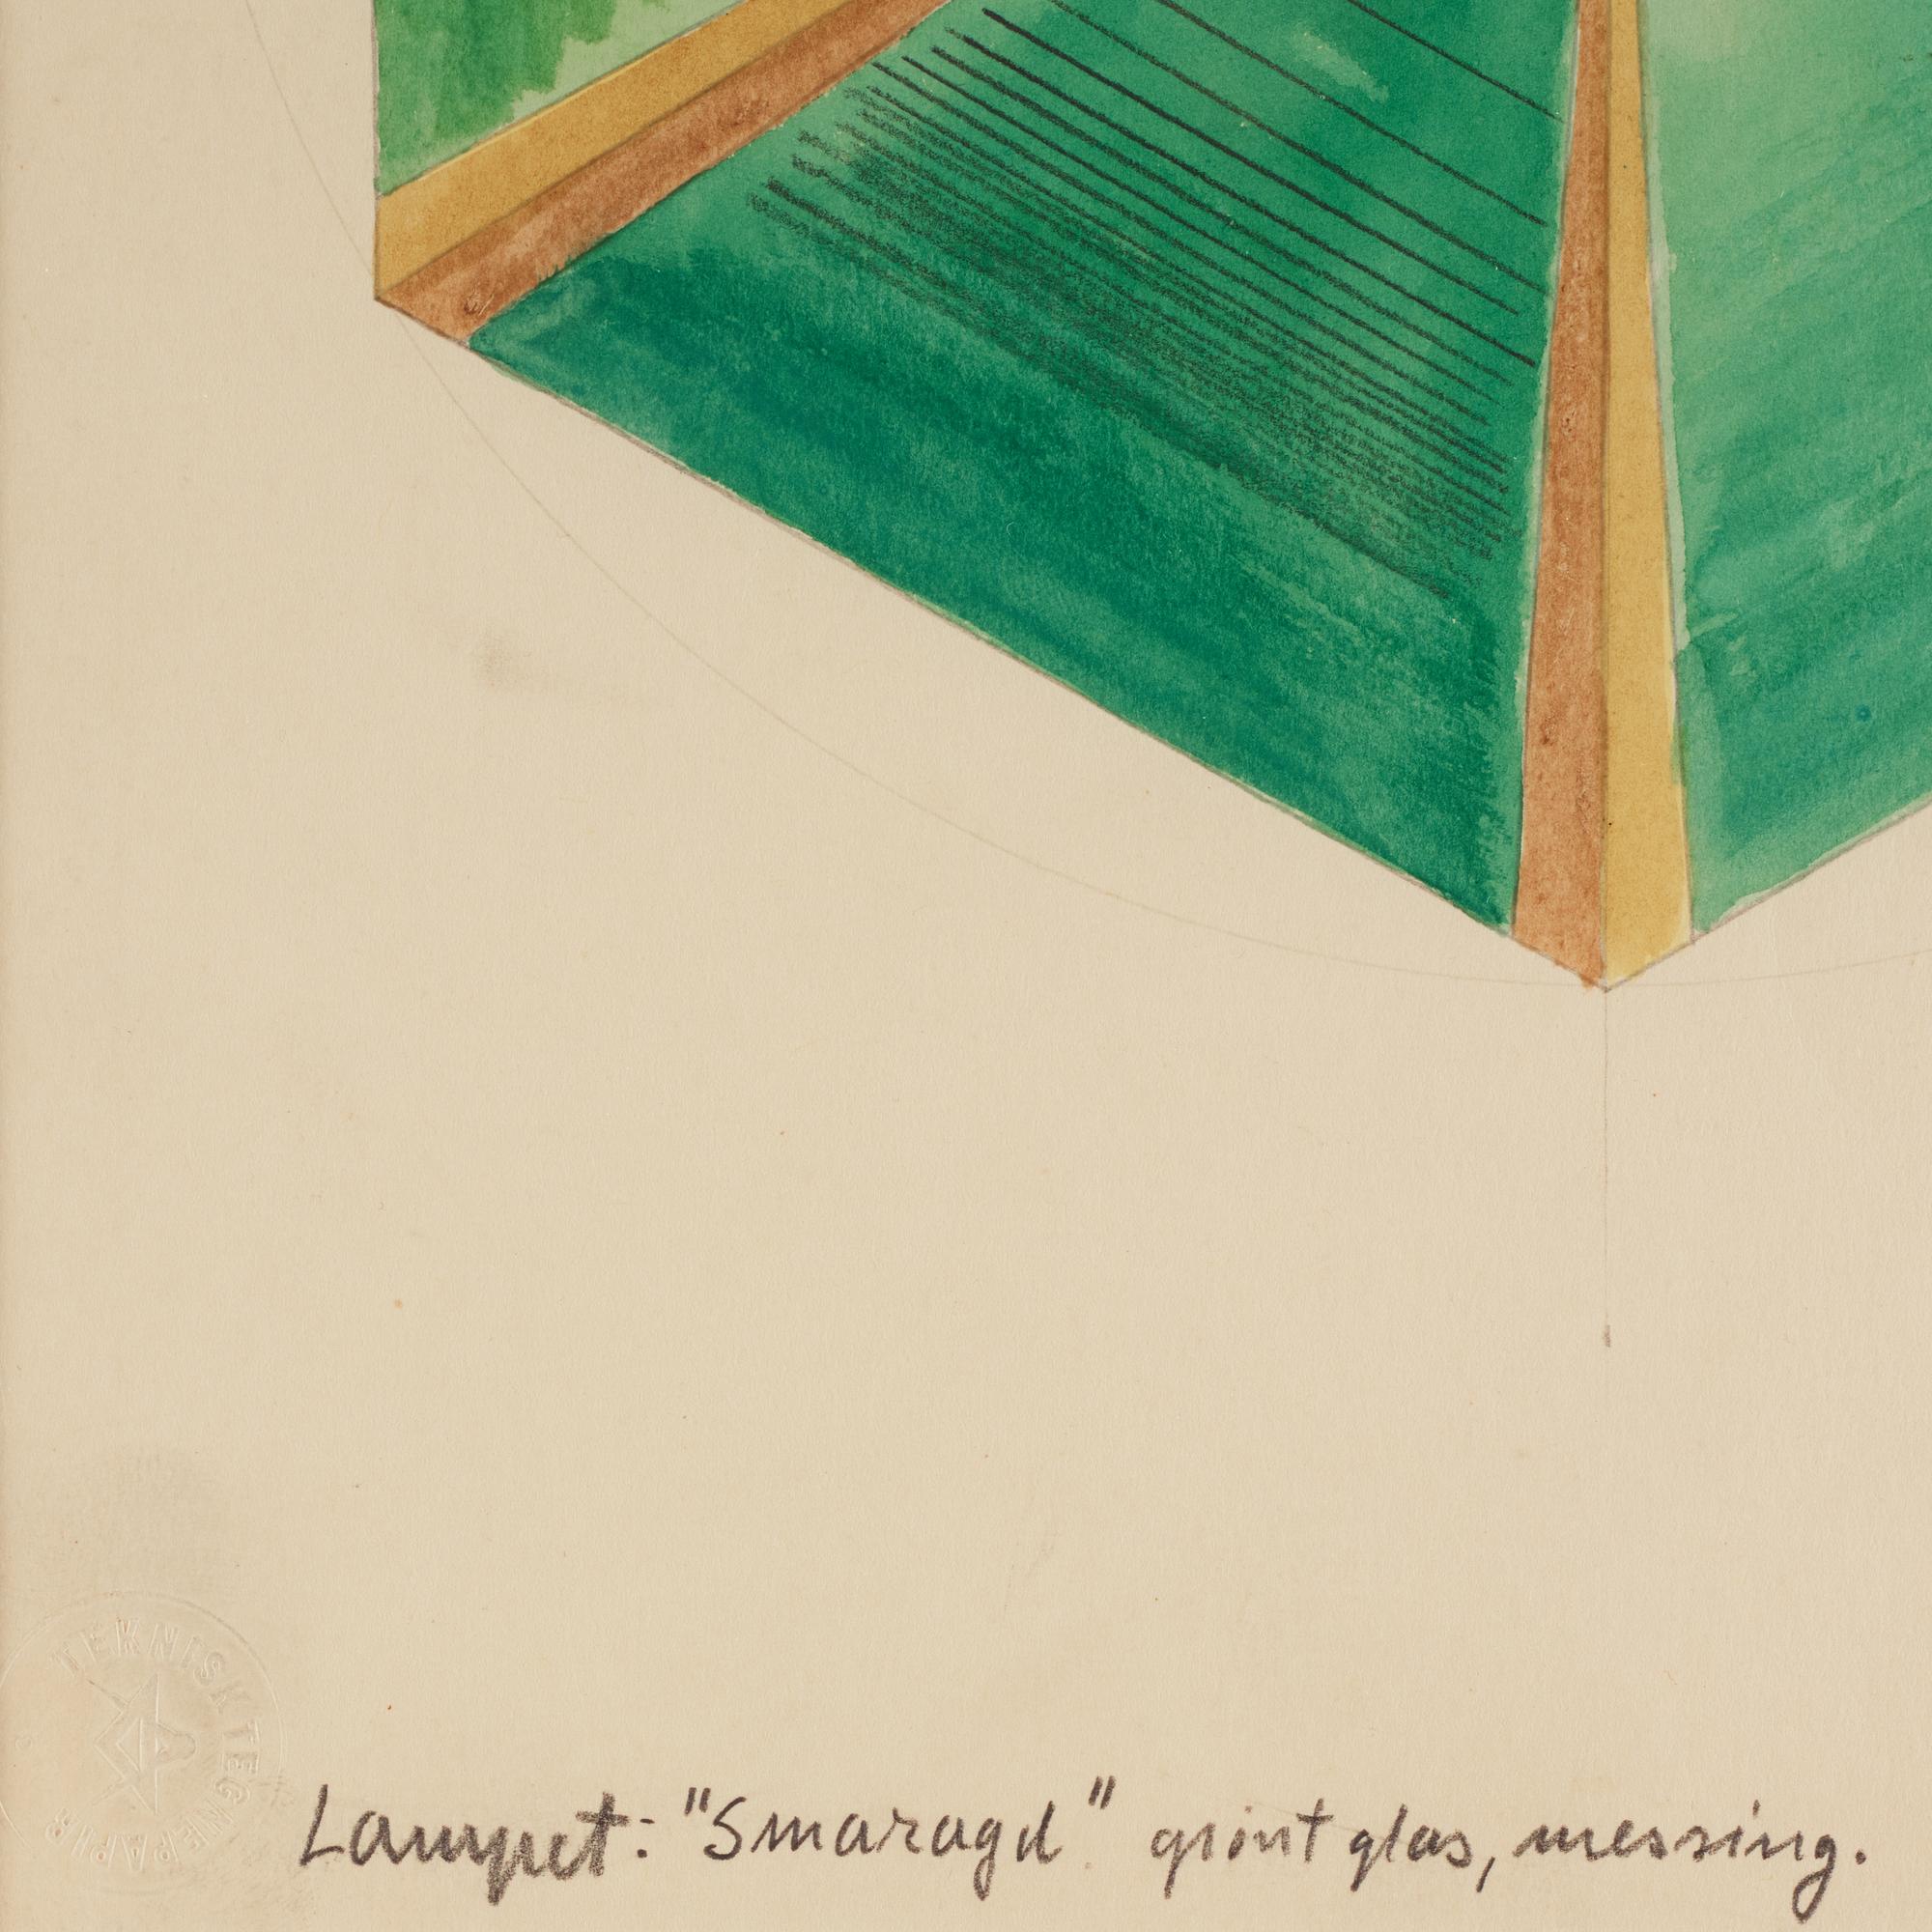 TEKNISK TEGNEPAPIR
Lampet: "Smaragd" grönt glas, messing.